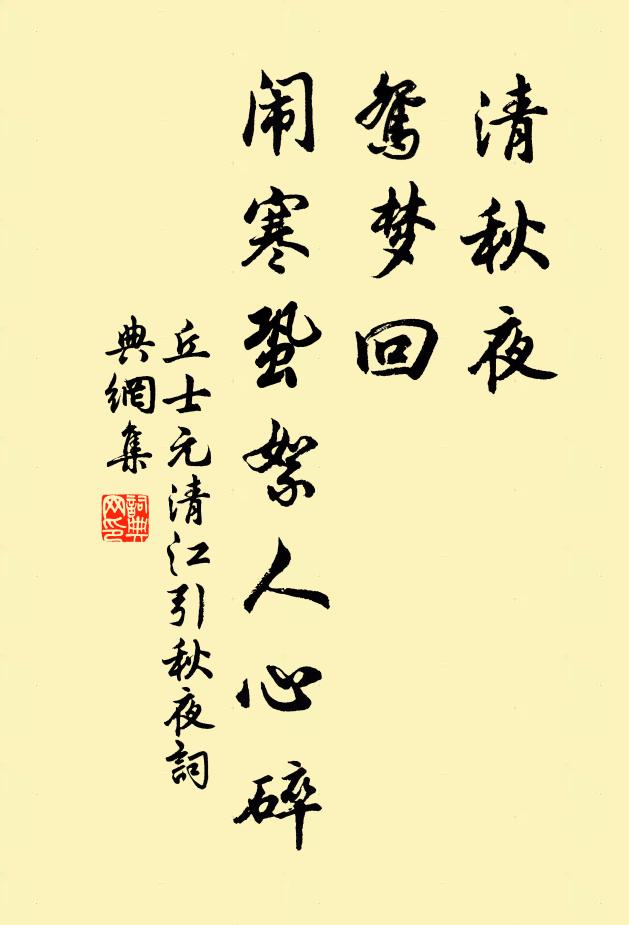 清秋夜
鸳梦回
闹寒蛩絮人心碎
丘士元清江引秋夜詞
典網集
詞典网印